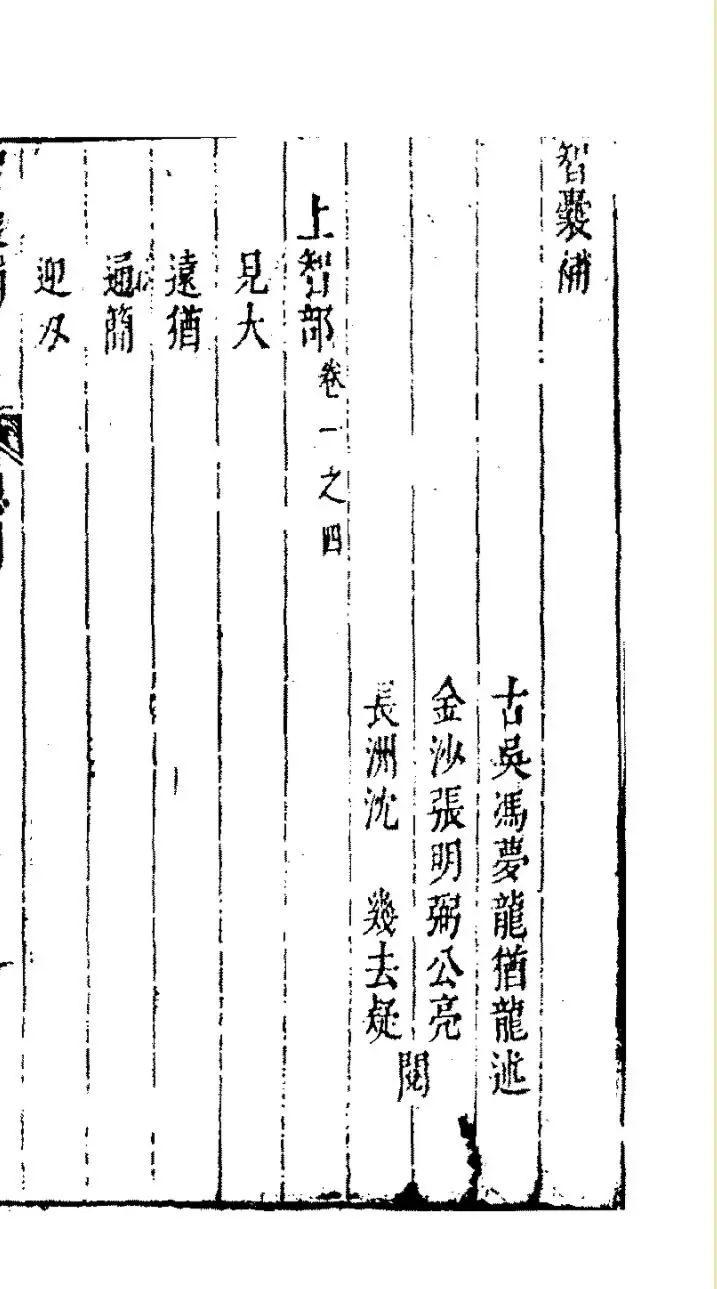 智囊補
古吳馮夢龍猶龍述
金沙張明弼公亮
長洲沈 幾去疑
閱
上智部 卷一之四
見大
遠猶
通簡
迎刃